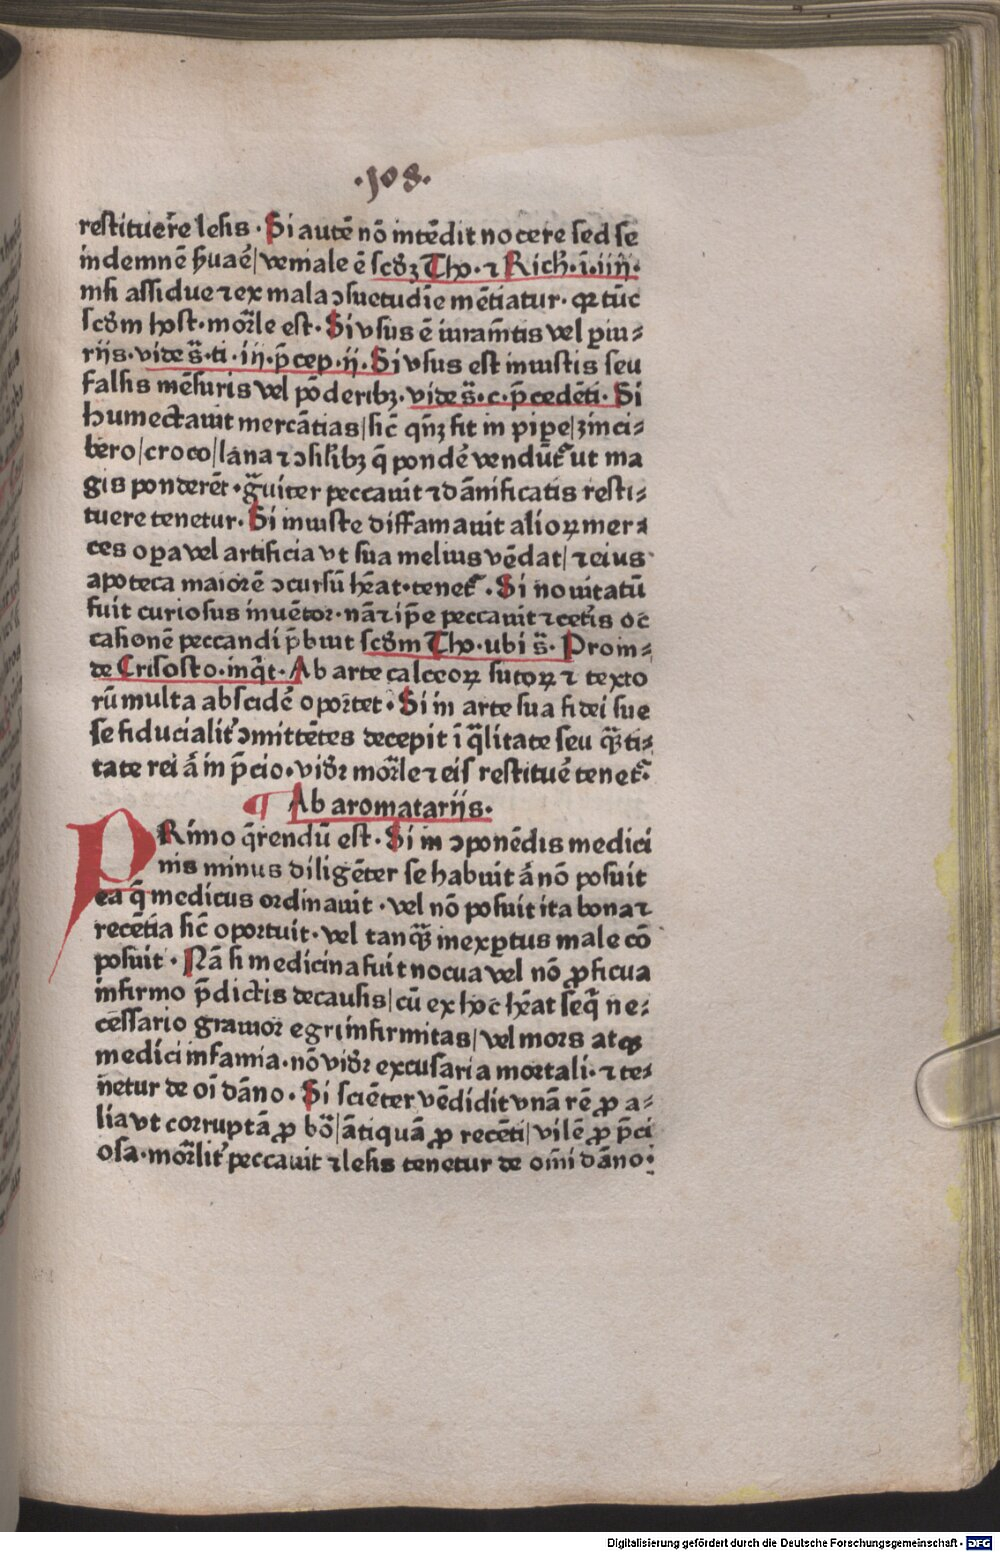 .108.
restituer̄e lesis. Si autē nō intēdit nocere sed se
indemnē ẜuaē/ veniale ē scd̄ꝫ Tho. ⁊ Rich̄. ī. iiij.
nisi assidue ⁊ ex mala ↄsuetudīe mētiatur. qꝛ tūc
scd̄m host. mor̄le est. Si vsus ē iuram̄tis vel ꝑiu⸗
rijs. vide s̄. ti. iij. p̄cep. ij. Si vsus est iniustis seu
falsis mēsuris vel pōderibꝫ. vide s̄. c. p̄cedēti. Si
humectauit mercātias/ sic̄ qn̄ꝫ fit in pipe/ zinci⸗
bero/ croco/ lana ⁊ ↄsilibꝫ q̄ pondē vendūt᷑ ut ma
gis ponderēt. gͣuiter peccauit ⁊ dānificatis resti⸗
tuere tenetur. Si iniuste diffamauit alioꝝ mer⸗
ces oꝑa vel artificia vt sua melius vēdat/ ⁊ eius
apoteca maiorē ↄcursū hēat. tenet᷑. Si nouitatū
fuit curiosus inuētor. nā ⁊ ip̄e peccauit ⁊ cetīs oc̄
casionē peccandi p̄buit scd̄m Tho. ubi s̄. Proin⸗
de Crisosto. inqͥt. Ab arte calceoꝝ sutoꝝ ⁊ texto
rū multa abscidē oportet. Si in arte sua fidei sue
se fiducialit᷑ ↄmittētes decepit ī qͣlitate seu qͣꝫti⸗
tate rei aͨ in p̄cio. vid᷑ mor̄le ⁊ eis restituē tenet᷑.
¶ Ab aromatarijs.
PRimo q̄rendū est. Si in ↄponēdis medici
nis minus diligēter se habuit aͨ nō posuit
ea q̄ medicus ordinauit. vel nō posuit ita bona ⁊
recētia sic̄ oportuit. vel tanqͣꝫ inexꝑtus male cō
posuit. Nā si medicina fuit nocua vel nō ꝓficua
infirmo p̄dictis de causis/ cū ex hoc hēat seq̄ ne⸗
cessario grauior egri infirmitas/ vel mors atqꝫ
medici infamia. nō vid᷑ excusari a mortali. ⁊ te⸗
netur de oī dāno. Si sciēter vēdidit vnā rē ꝓ a⸗
lia vt corruptā ꝓ bōͣ/ ātiquā ꝓ recēti/ vilē ꝓ p̄ci
osa. mor̄lit᷑ peccauit ⁊ lesis tenetur de om̄i dāno.
Digitalisierung gefördert durch die Deutsche Forschungsgemeinschaft - DFG